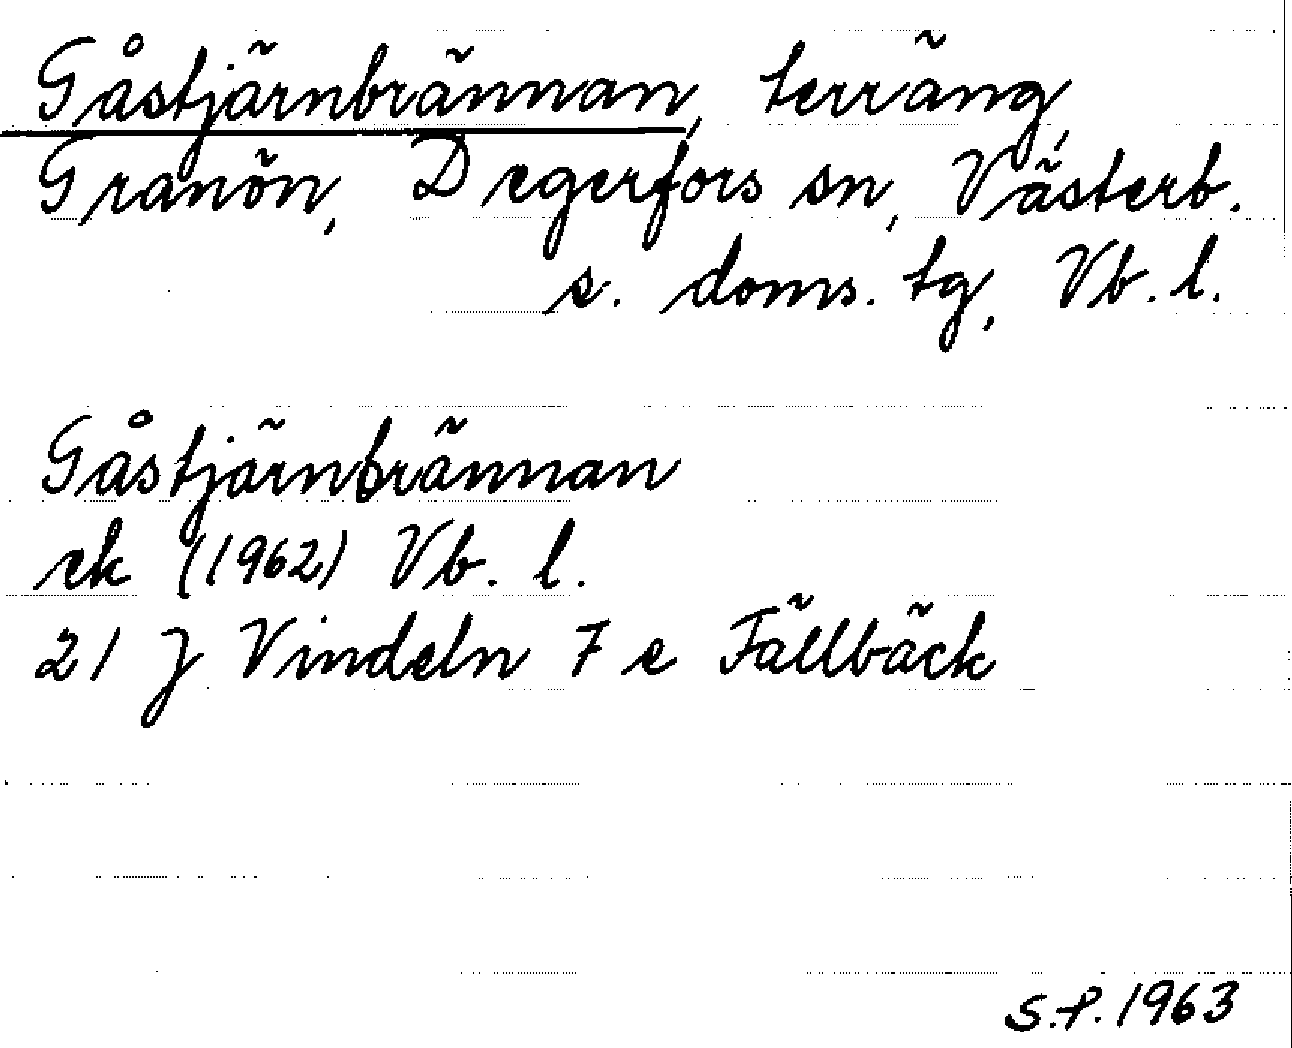 Gåstjärnbrännan, terräng,
Granön, Degerfors sn, Västerb.
s. doms. tg, Vb. l.
Gåstjärnbrännan
ek (1962) Vb. l.
21 J Vindeln 7 e Fällbäck
S.P. 1963